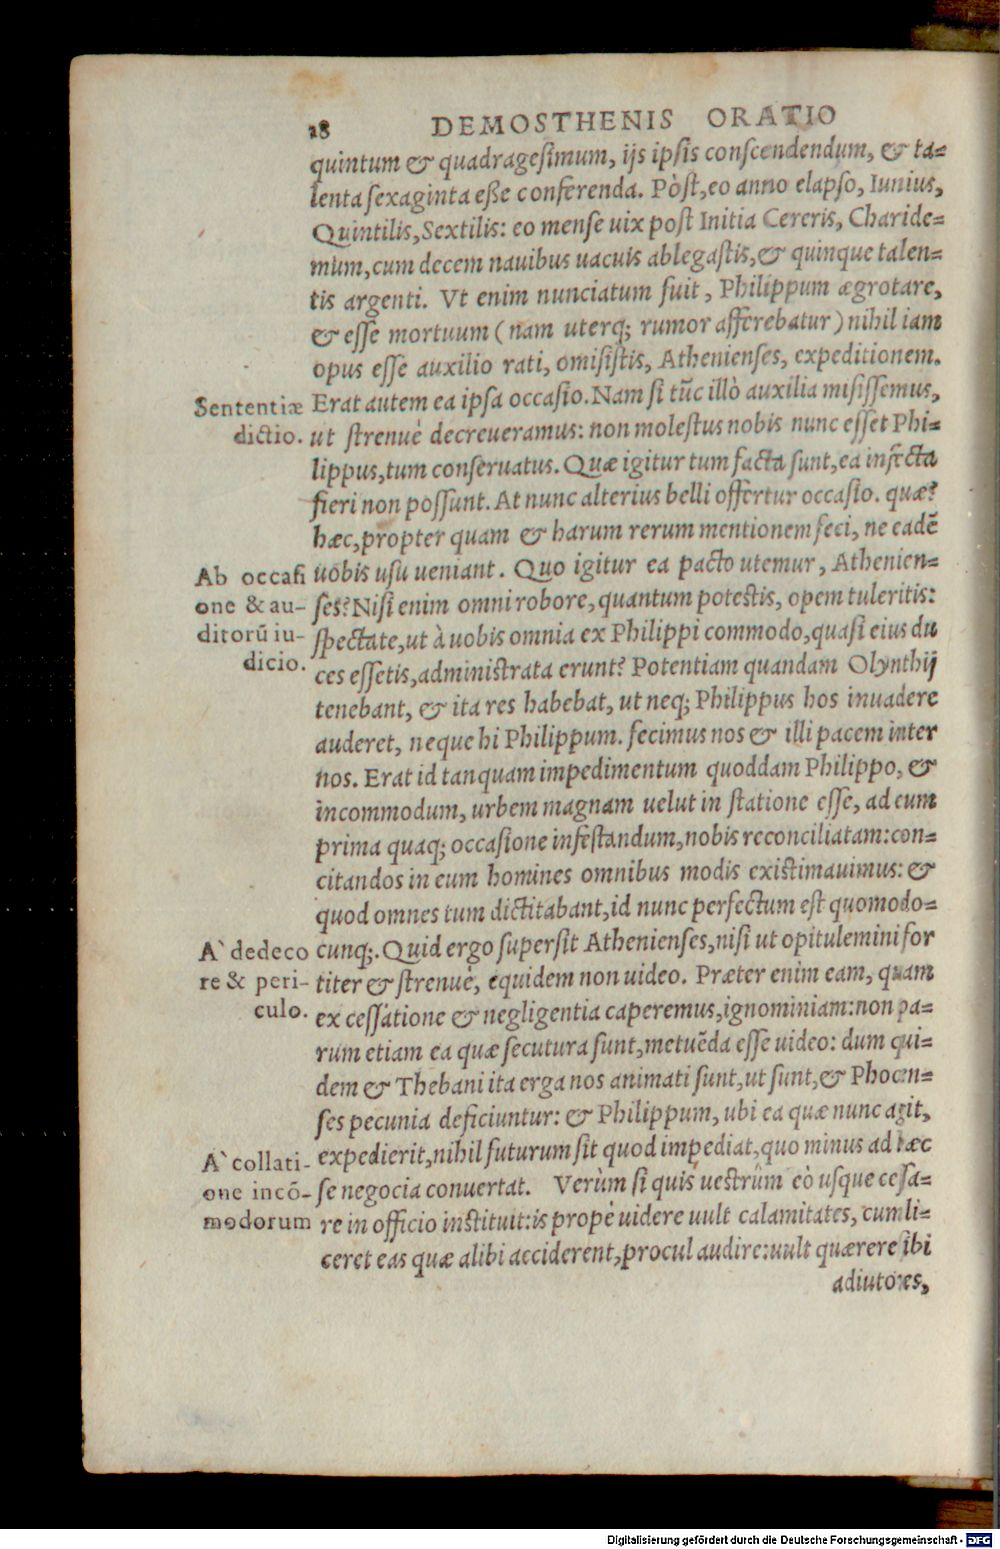 28 DEMOSTHENIS ORATIO
quintum & quadragesimum, ijs ipsis conscendendum, & ta-
lenta sexaginta eße conferenda. Pòst, eo anno elapso, Iunius,
Quintilis, Sextilis: eo mense uix post Initia Cereris, Charide-
mum, cum decem nauibus uacuis ablegastis, & quinque talen-
tis argenti. Vt enim nunciatum fuit, Philippum ægrotare,
& esse mortuum (nam uterq; rumor afferebatur) nihil iam
opus esse auxilio rati, omisistis, Athenienses, expeditionem.
Sententiæ
dictio.
Erat autem ea ipsa occasio. Nam si tũc illò auxilia misissemus,
ut strenuè decreueramus: non molestus nobis nunc esset Phi-
lippus, tum conseruatus. Quæ igitur tum facta sunt, ea infecta
fieri non possunt. At nunc alterius belli offertur occasio. quæ?
hæc, propter quam & harum rerum mentionem feci, ne eadẽ
Ab occasi
one & au-
ditorũ iu-
dicio.
uobis usu ueniant. Quo igitur ea pacto utemur, Athenien-
ses? Nisi enim omni robore, quantum potestis, opem tuleritis:
spectate, ut à uobis omnia ex Philippi commodo, quasi eius du
ces essetis, administrata erunt? Potentiam quandam Olynthij
tenebant, & ita res habebat, ut neq; Philippus hos inuadere
auderet, neque hi Philippum. fecimus nos & illi pacem inter
nos. Erat id tanquam impedimentum quoddam Philippo, &
incommodum, urbem magnam uelut in statione esse, ad eum
prima quaq; occasione infestandum, nobis reconciliatam: con-
citandos in eum homines omnibus modis existimauimus: &
quod omnes tum dictitabant, id nunc perfectum est quomodo-
A` dedeco
re & peri-
culo.
cunq;. Quid ergo supersit Athenienses, nisi ut opitulemini for
titer & strenuè, equidem non uideo. Præter enim eam, quam
ex cessatione & negligentia caperemus, ignominiam: non pa-
rum etiam ea quæ secutura sunt, metuẽda esse uideo: dum qui-
dem & Thebani ita erga nos animati sunt, ut sunt, & Phocen-
ses pecunia deficiuntur: & Philippum, ubi ea quæ nunc agit,
A` collati-
one incõ-
modorum
expedierit, nihil futurum sit quod impediat, quo minus ad hæc
se negocia conuertat. Verùm si quis uestrûm eò usque cessa-
re in officio instituit: is propè uidere uult calamitates, cum li-
ceret eas quæ alibi acciderent, procul audire: uult quærere sibi
adiutores,
Digitalisierung gefördert durch die Deutsche Forschungsgemeinschaft - DFG